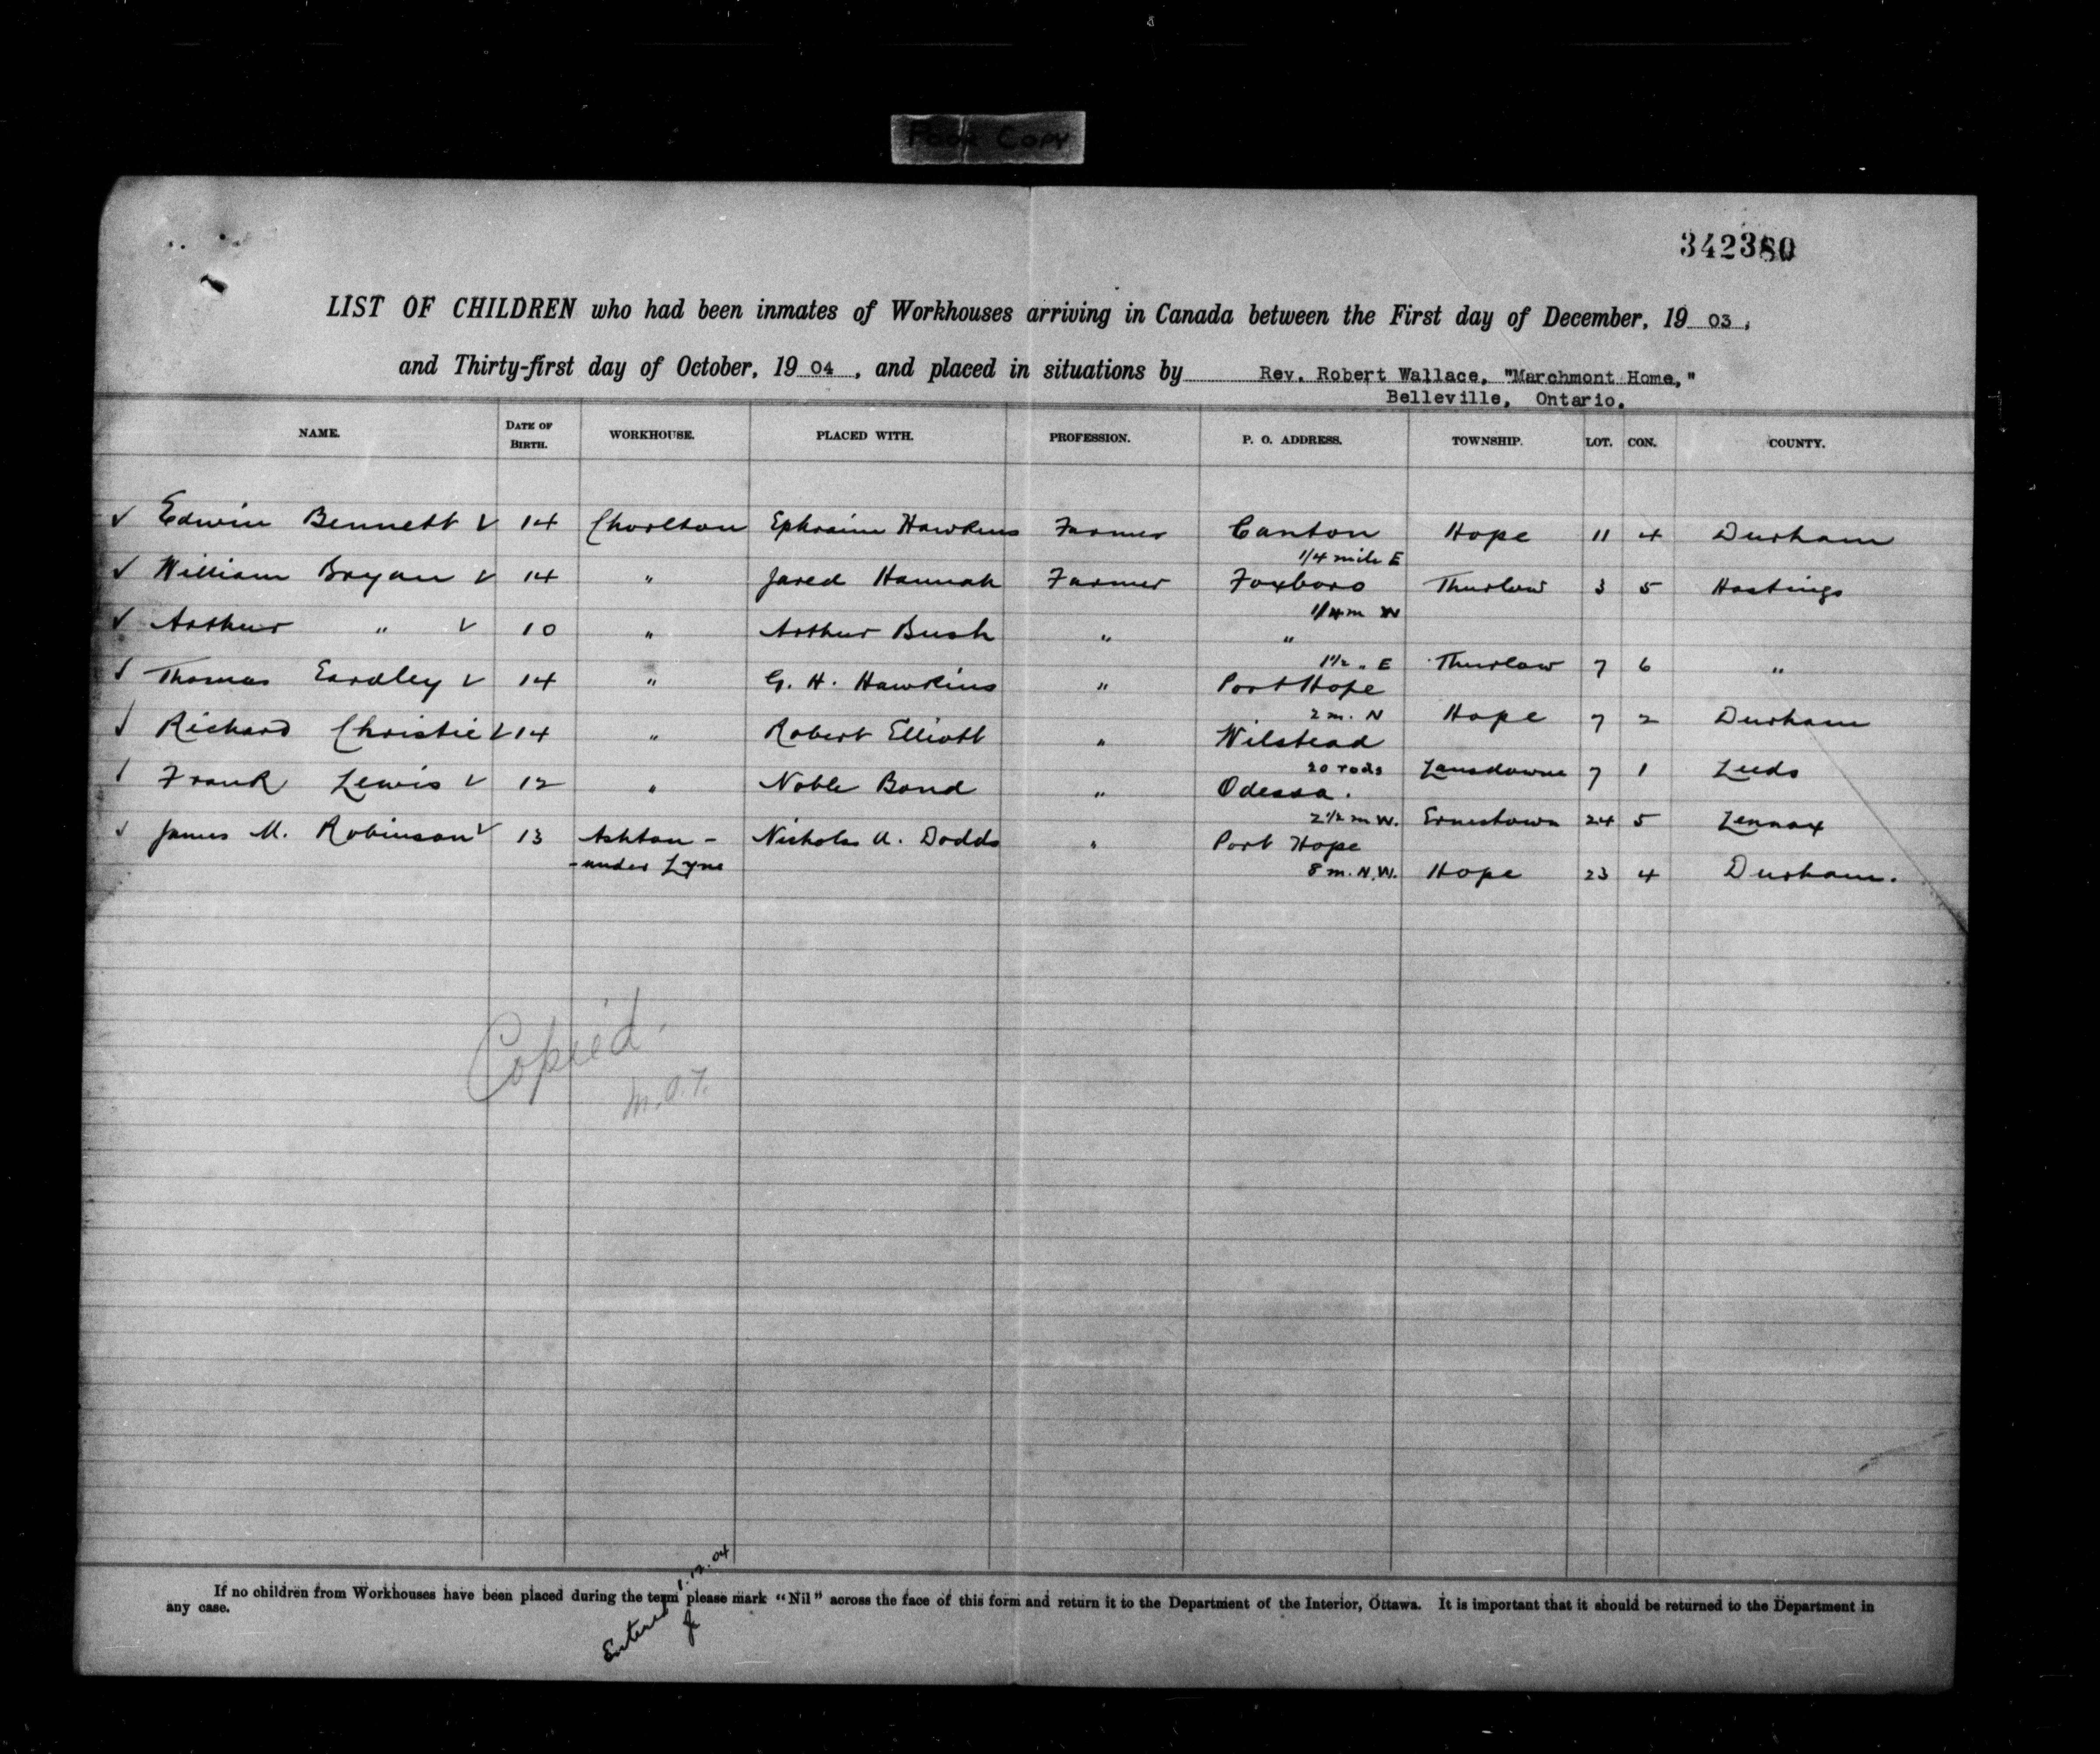 Poor Copy
342380
LIST OF CHILDREN who had been inmates of Workhouses arriving in Canada between the First day of December, 19 03,
and Thirty-first day of October, 19 04, and placed in situations by Rev. Robert Wallace, "Marchmont Home,"
Belleville, Ontario.
NAME. DATE OF BIRTH. WORKHOUSE. PLACED WITH. PROFESSION. P. O. ADDRESS. TOWNSHIP. LOT. CON. COUNTY.
✓ Edwin Bennett ✓ 14 Chorlton Ephraim Hawkins Farmer Canton Hope 11 4 Durham
1/4 mile E
✓ William Bryan ✓ 14 " Jared Hannah Farmer Foxboro Thurlow 3 5 Hastings
1/4 m W
✓ Arthur " ✓ 10 " Arthur Bush " "
1 1/2 " E Thurlow 7 6 "
✓ Thomas Eardley ✓ 14 " G. H. Hawkins " Port Hope
2 m. N Hope 7 2 Durham
✓ Richard Christie ✓ 14 " Robert Elliott " Wilstead
20 rods Lansdowne 7 1 Leeds
✓ Frank Lewis ✓ 12 " Noble Bond " Odessa.
2 1/2 m W. Ernestown 24 5 Lennox
✓ James M. Robinson ✓ 13 Ashton - Nicholas A. Dodds " Port Hope
- under Lyne 8 m. N.W. Hope 23 4 Durham.
Copied.
M.O.T.
If no children from Workhouses have been placed during the term please mark "Nil" across the face of this form and return it to the Department of the Interior, Ottawa. It is important that it should be returned to the Department in
any case.
Entered 1.12.04